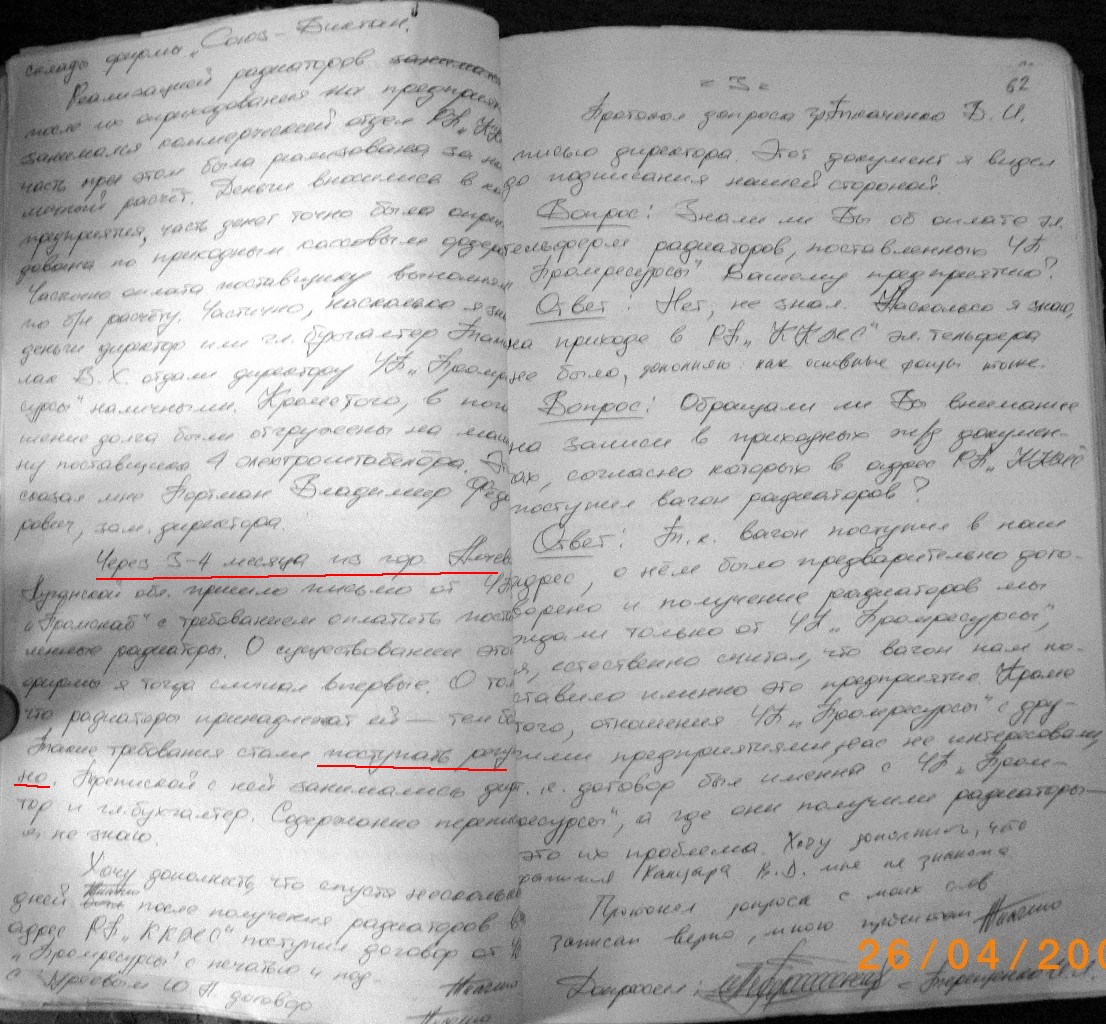 склады фирмы „Союз-Виктан".
Реализацией радиаторов
после их оприходования на предприятии
занимался коммерческий отдел РП „ККДС"
часть при этом была реализована за на
личный расчёт. Деньги вносились в ка
предприятия, часть денег точно была оприх
дована по приходным кассовым ордерам
Частично оплата поставщику выполнял
по б/н расчёту. Частично, насколько я зна
деньги директор или гл. бухгалтер
В. Х. отдали директору ЧП „Промре
сурсы" наличными. Кроме того, в пога
шение долга были отгружены на маши
ну поставщика 4 электроштабелёра. Эт
сказал мне Портман Владимир Фёдо
рович, зам. директора.
Через 3-4 месяца из гор.
Луганской обл. пришло письмо от ЧП
„Промснаб" с требованием оплатить поста
ленные радиаторы. О существовании этой
фирмы я тогда слышал впервые. О том
что радиаторы принадлежат ей — тем бо
Такие требования стали поступать регу
но. Перепиской с ней занимались дирек
тор и гл. бухгалтер. Содержание перепис
я не знаю.
Хочу дополнить, что спустя несколько
дней после получения радиаторов в
адрес РП „ККДС" поступил договор от Ч
„Промресурсы" с печатью и под-
с Ю. П. договор
62
= 3 =
Протокол допроса гр Ткаченко В. И.
писью директора. Этот документ я видел
до подписания нашей стороной.
Вопрос: Знали ли Вы об оплате эл.
тельфером радиаторов, поставленных ЧП
„Промресурсы" Вашему предприятию?
Ответ: Нет, не знал. Насколько я знаю,
на приходе в РП „ККДС" эл. тельфера
не было, дополняю: как основные фонды тоже.
Вопрос: Обращали ли Вы внимание
на записи в приходных ж/д докумен-
тах, согласно которых в адрес РП „ККДС"
поступил вагон радиаторов?
Ответ: Т. к. вагон поступил в наш
адрес, о нём было предварительно дого-
ворено и получение радиаторов мы
ждали только от ЧП „Промресурсы",
я, естественно считал, что вагон нам по-
ставило именно это предприятие. Кроме
того, отношения ЧП „Промресурсы" с дру-
гими предприятиями нас не интересовали,
т. к. договор был именно с ЧП „Пром-
ресурсы", а где они получили радиаторы —
это их проблема. Хочу дополнить, что
фамилия Канцыра В. Д. мне не знакома
Протокол допроса с моих слов
записан верно, мною прочитан
Допросил:
26/04/200